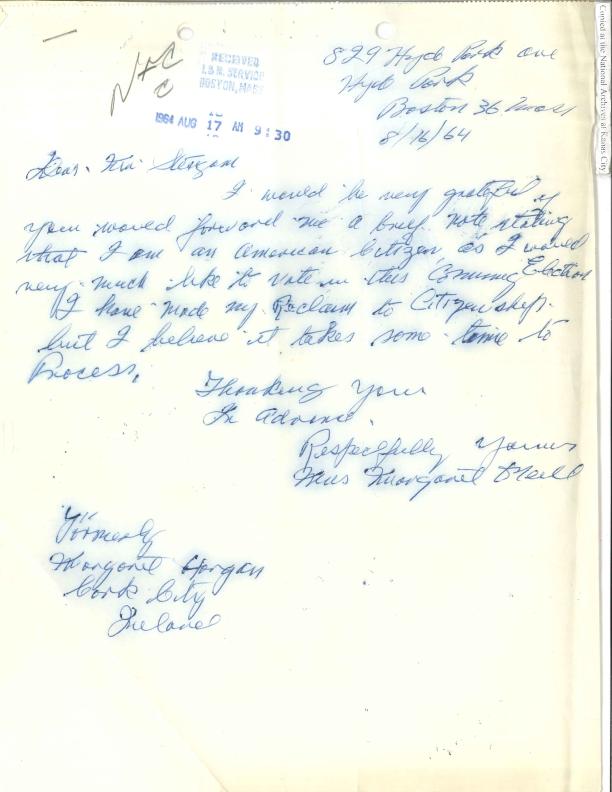 Copied at the National Archives at Kansas City
N + C
C
RECEIVED
I. & N. SERVICE
BOSTON, MASS
1964 AUG 17 AM 9:30
829 Hyde Park ave
Hyde Park
Boston 36 Mass
8/16/64
Dear Mr.
I would be very grateful if
you would forward me a brief note stating
that I am an American Citizen as I would
very much like to vote in this Comming Election
I have made my Reclaim to Citizenship.
but I believe it takes some time to
Process.
Thanking You
In advance.
Respectfully Yours
Mrs Margaret O'Neill
"Formerly
Margaret Horgan
Cork City
Ireland